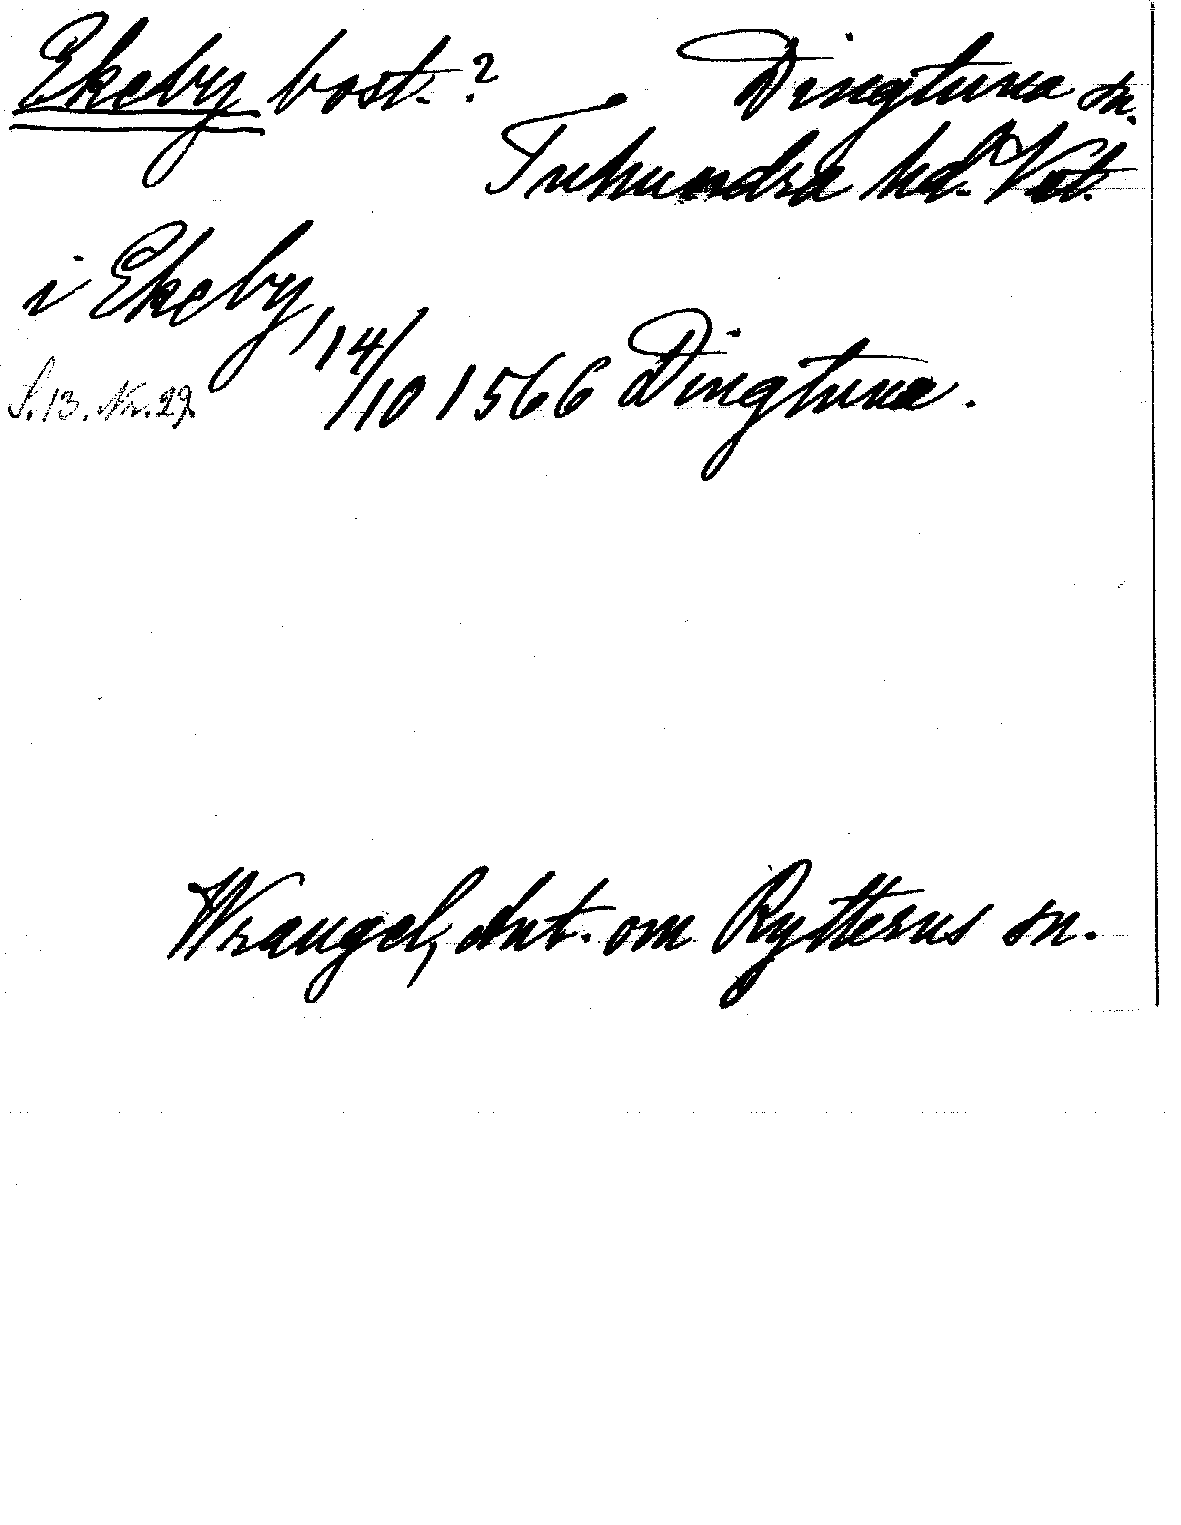 Ekeby bost. ? Dingtuna sn.
Tuhundra hd. Vstl.
i Ekeby, 14/10 1566 Dingtuna.
S. 13. Nr. 29.
Wrangel, Ant. om Rytterns sn.